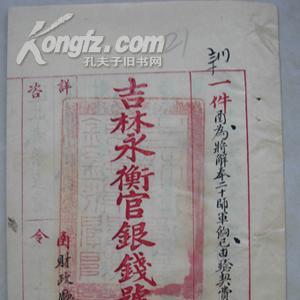 Kongfz.com
孔夫子旧书网
21
訓
一件函為將解奉二十師軍餉已由驗契費
吉林永衡官銀錢號
詳
咨
令
函財政廳